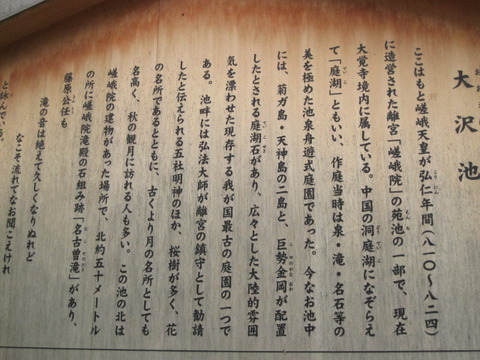 大沢池
ここはもと嵯峨天皇が弘仁年間(八一〇〜八二四)
に造営された離宮「嵯峨院」の苑池の一部で、現在
大覚寺境内に属している。中国の洞庭湖になぞらえ
て「庭湖」ともいい、作庭当時は泉・滝・名石等の
美を極めた池泉舟遊式庭園であった。今なお池中
には、菊ガ島・天神島の二島と、巨勢金岡が配置
したとされる庭湖石があり、広々とした大陸的雰囲
気を漂わせた現存する我が国最古の庭園の一つで
ある。池畔には弘法大師が離宮の鎮守として勧請
したと伝えられる五社明神のほか、桜樹が多く、花
の名所であるとともに、古くより月の名所としても
名高く、秋の観月に訪れる人も多い。この池の北は
嵯峨院の建物があった場所で、北約五十メートル
の所に嵯峨院滝殿の石組み跡「名古曽滝」があり、
藤原公任も
滝の音は絶えて久しくなりぬれど
なこそ流れてなお聞こえけれ
と詠んでいる。